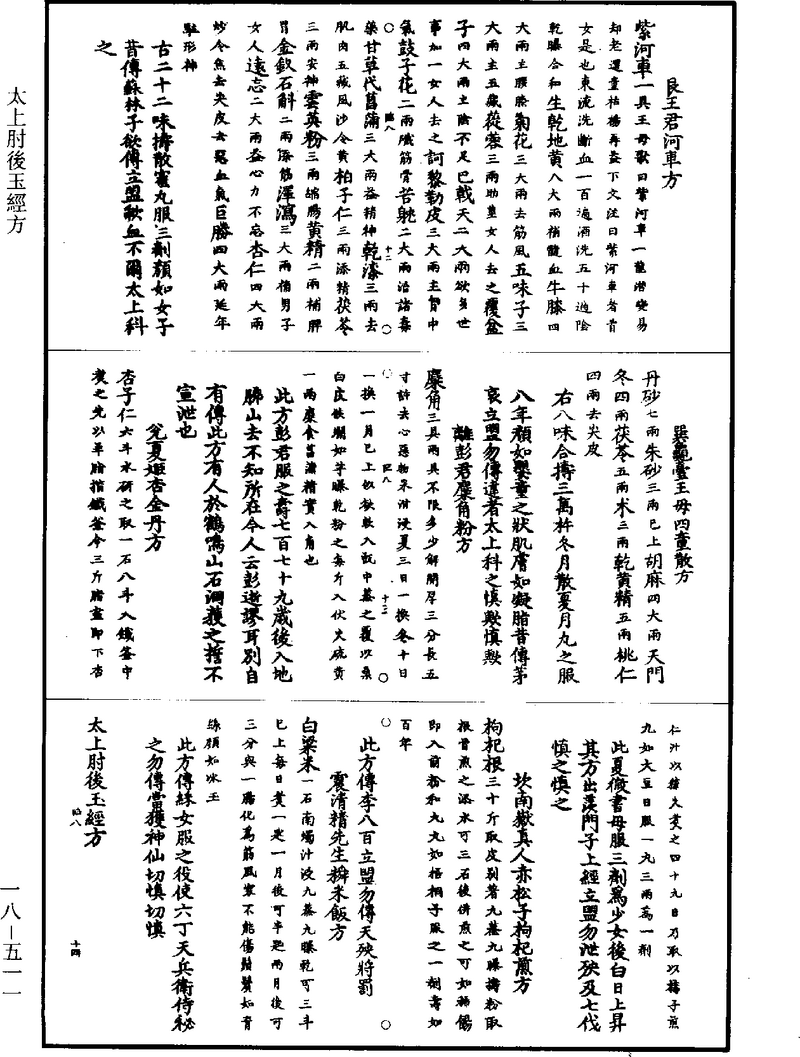 太上肘後玉經方
一八－五一一
艮王君河車方
紫河車一具王母歌曰紫河車一龍潛變易
却老還童枯楊再益下文注曰紫河車者首
女是也東流洗斷血一百遍酒洗五十遍陰
乾曝合和生乾地黃八大兩補髓血牛膝四
大兩主腰膝菊花三大兩去筋風五味子三
大兩主五藏蓯蓉三兩助莖女人去之覆盆
子四大兩主陰不足巴戟天二大兩欲多世
事加一女人去之訶黎勒皮三大兩主胷中
氣鼓子花二兩續筋骨苦躭二大兩治諸毒
藥甘草代菖蒲三大兩益精神乾漆三兩去
肌肉五藏風沙令黃柏子仁三兩添精茯苓
三兩安神雲英粉三兩縮腸黃精二兩補脾
胃金釵石斛二兩添筋澤瀉三大兩補男子
女人遠志二大兩益心力不忘杏仁四大兩
炒令焦去尖皮去惡血氣巨勝四大兩延年
駐形神
右二十二味擣散蜜丸服三劑顏如女子
昔傳蘇林子欲傳立盟歃血不爾太上科
之
巽龜臺王母四童散方
丹砂七兩朱砂三兩巳上胡麻四大兩天門
冬四兩茯苓五兩朮三兩乾黃精五兩桃仁
四兩去尖皮
右八味合擣三萬杵冬月散夏月丸之服
八年顏如嬰童之狀肌膚如凝脂昔傳茅
衷立盟勿傳違者太上科之慎歟慎歟
離彭君麋角粉方
麋角三具兩具不限多少解開厚三分長五
寸許去心惡物米泔浸夏三日一換冬十日
一換一月巳上似欲軟入甑中蒸之覆以桑
白皮候爛如芋曝乾粉之每斤入伏火硫黃
一兩麋食菖蒲精實入角也
此方彭君服之壽七百七十九歲後入地
肺山去不知所在今人云彭逝謬耳別自
有傳此方有人於鶴鳴山石洞獲之誓不
宣泄也
兌夏姬杏金丹方
杏子仁六斗水研之取一石八斗入鐵釜中
煑之先以羊脂揩鐵釜令三斤脂盡即下杏
仁汁以糠火煑之四十九日乃取以構子煎
丸如大豆日服一丸三兩為一劑
此夏徵舒母服三劑為少女後白日上昇
其方出羨門子上經立盟勿泄殃及七代
慎之慎之
坎南嶽真人赤松子枸杞煎方
枸杞根三十斤取皮別著九蒸九曝擣粉取
根骨煎之添水可三石後併煎之可如稀餳
即入前粉和丸丸如梧桐子服之一劑壽如
百年
此方傳李八百立盟勿傳天殃將罰
震清精先生𥻨米飯方
白粱米一石南燭汁浸九蒸九曝乾可三斗
已上每日食一匙一月後可半匙兩月後可
三分與一腸化為筋風寒不能傷鬚鬢如青
絲顏如冰玉
此方傳綵女服之役使六丁天兵衛侍秘
之勿傳當獲神仙切慎切慎
太上肘後玉經方